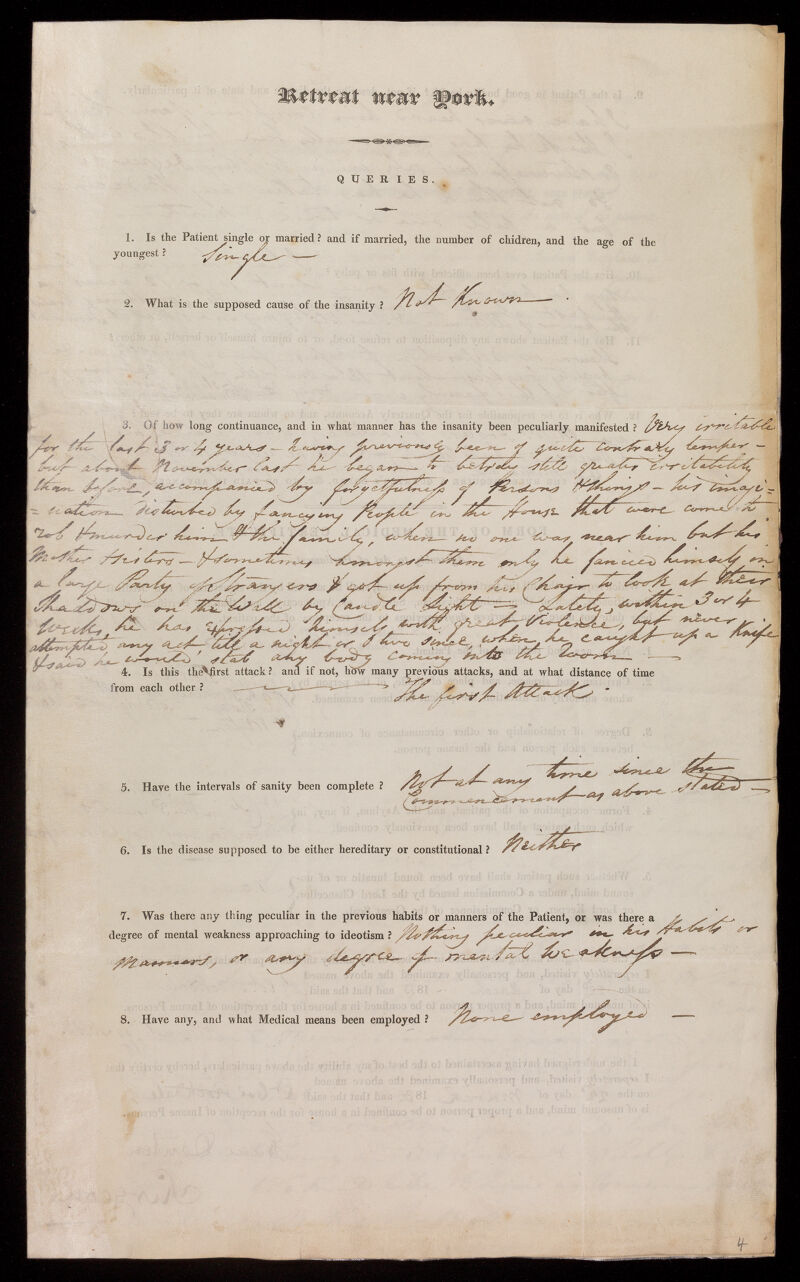 Retreat near York.
QUERIES.
1. Is the Patient single or married? and if married, the number of chidren, and the age of the
youngest? Single —
2. What is the supposed cause of the insanity? Not Known —
3. Of how long continuance, and in what manner has the insanity been peculiarly manifested? Very irritable
for the last 3 or 4 years — having previously been of quite contrary temper —
but about November last he began to betray still greater irritability
than before, accompanied by forgetfulness of Persons & things — his imagi=
=nation disturbed by fancying People in the House that were come to
rob & murder him & the family, when no one was near him but his
Mother & sisters — & sometimes amongst them only he fancied himself in
a large Party of Strangers & got up from his Chair to look at their
Shaddows on the Wall by Candle Light — Lately, within 3 or 4
Weeks, he has expressed himself with great Violence, but never
attempted any act till a night or two since, when he caught up a Knife
& said he would stab any body coming into the Room —
4. Is this the first attack? and if not, how many previous attacks, and at what distance of time
from each other? — The first Attack.
5. Have the intervals of sanity been complete? Not at any time since the
Commencement as above stated —
6. Is the disease supposed to be either hereditary or constitutional? Neither
7. Was there any thing peculiar in the previous habits or manners of the Patient, or was there a
degree of mental weakness approaching to ideotism? Nothing peculiar in his Habits or
Manners, or any degree of mental Weakness —
8. Have any, and what Medical means been employed? None employed —
4